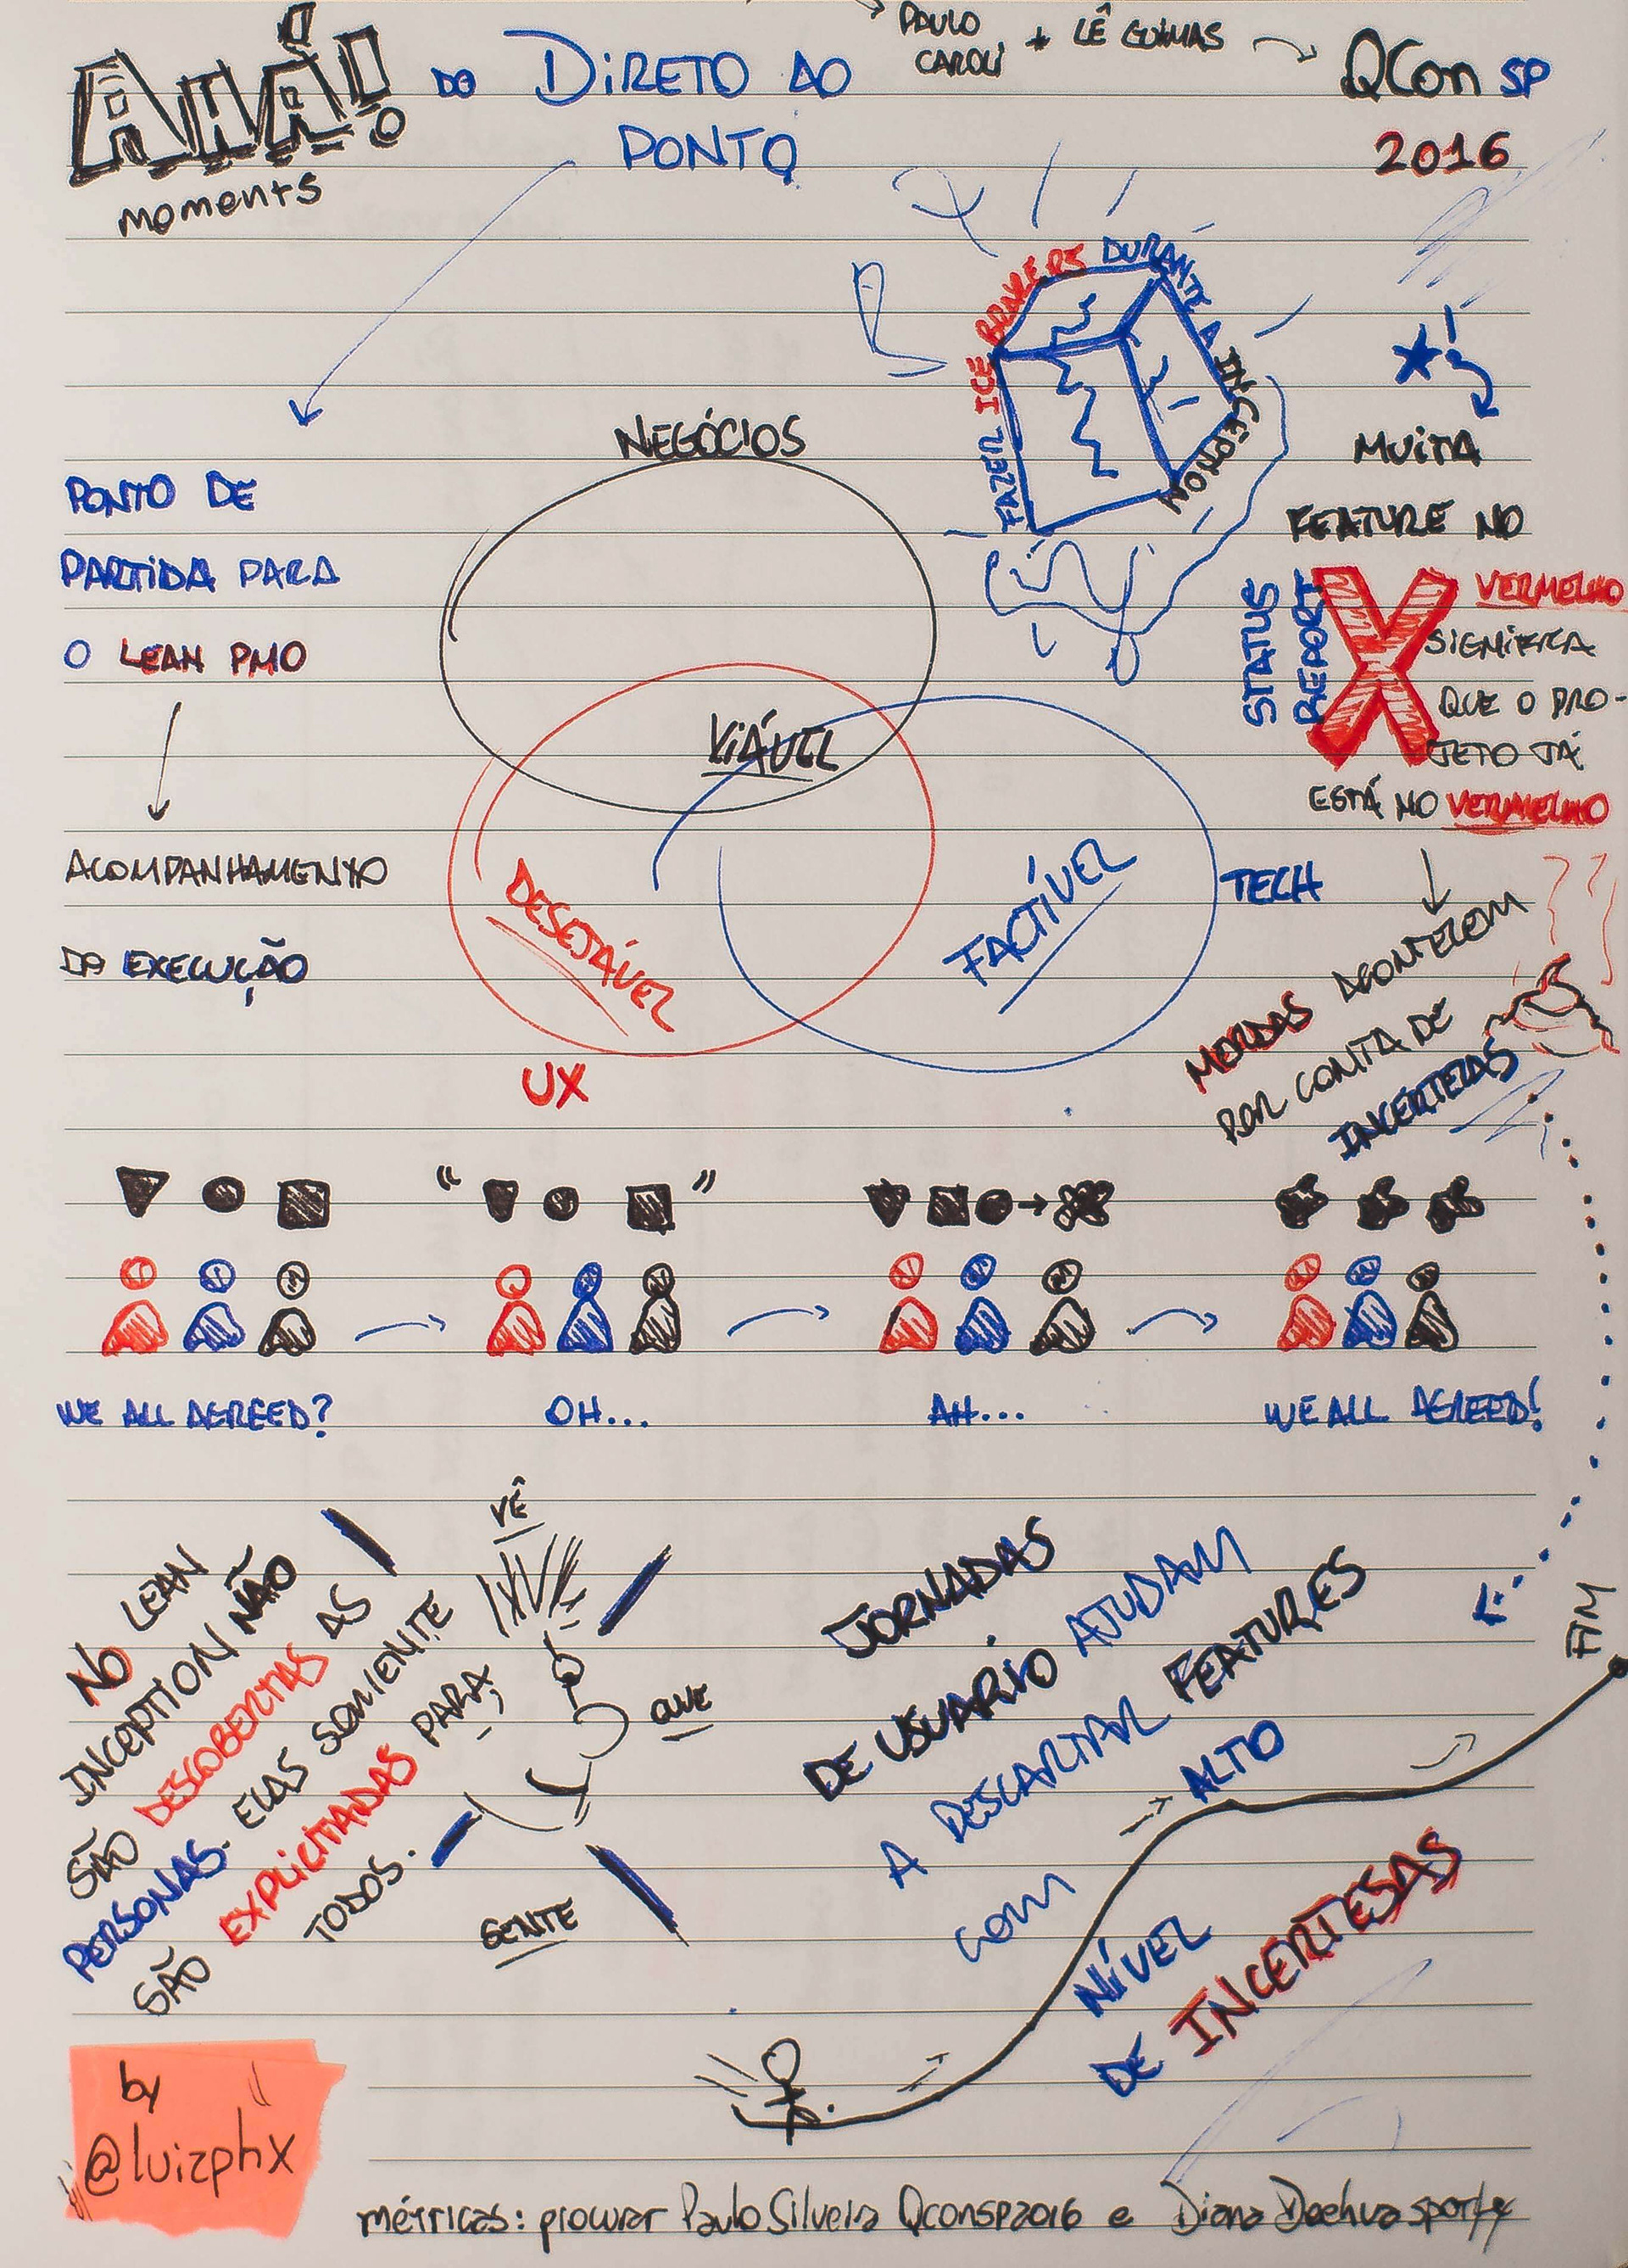 AHÁ!
moments
DO DIRETO AO
PONTO
PAULO
CAROLI + LÊ GUIMAS
QCon SP
2016
FAZER ICE BRAKERS DURANTE A INCEPTION
MUITA
FEATURE NO
STATUS
REPORT
X
VERMELHO
SIGNIFICA
QUE O PRO-
JETO JÁ
ESTÁ NO VERMELHO
MERDAS ACONTECEM
POR CONTA DE
INCERTEZAS
PONTO DE
PARTIDA PARA
O LEAN PMO
ACOMPANHAMENTO
DA EXECUÇÃO
NEGÓCIOS
VIÁVEL
DESEJÁVEL
FACTÍVEL
TECH
UX
" "
WE ALL AGREED?
OH...
AH...
WE ALL AGREED!
NO LEAN
INCEPTION NÃO
SÃO DESCOBERTAS AS
PERSONAS. ELAS SOMENTE
SÃO EXPLICITADAS PARA
TODOS.
VÊ
QUE
GENTE
JORNADAS
DE USUARIO AJUDAM
A DESCARTAR FEATURES
COM ALTO
NÍVEL
DE INCERTESAS
FIM
by
@luizphx
métricas: procurar Paulo Silveira QconSP2016 e Diana